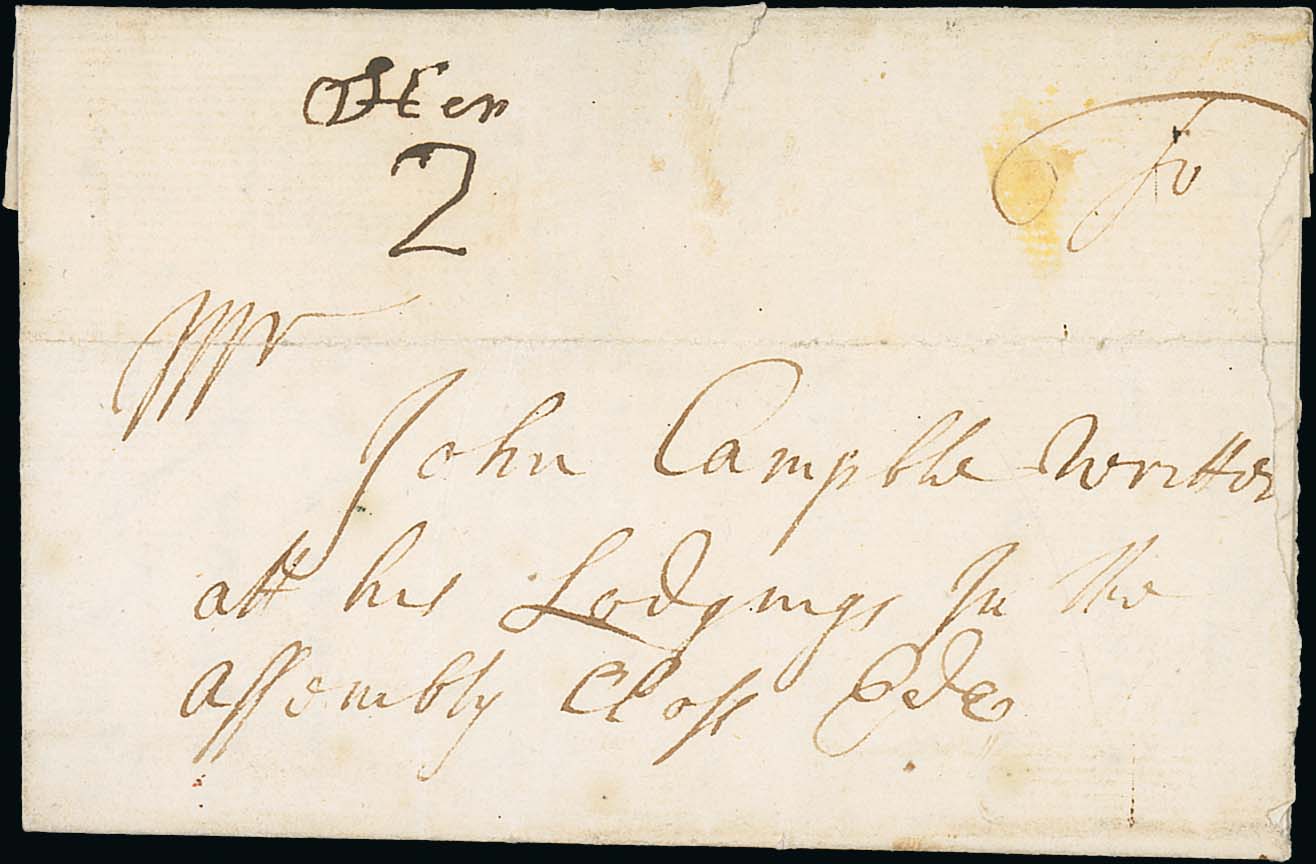 Ster
2
To
Mr
John Campble Writter
att his Lodgings In the
assembly Closs Edr